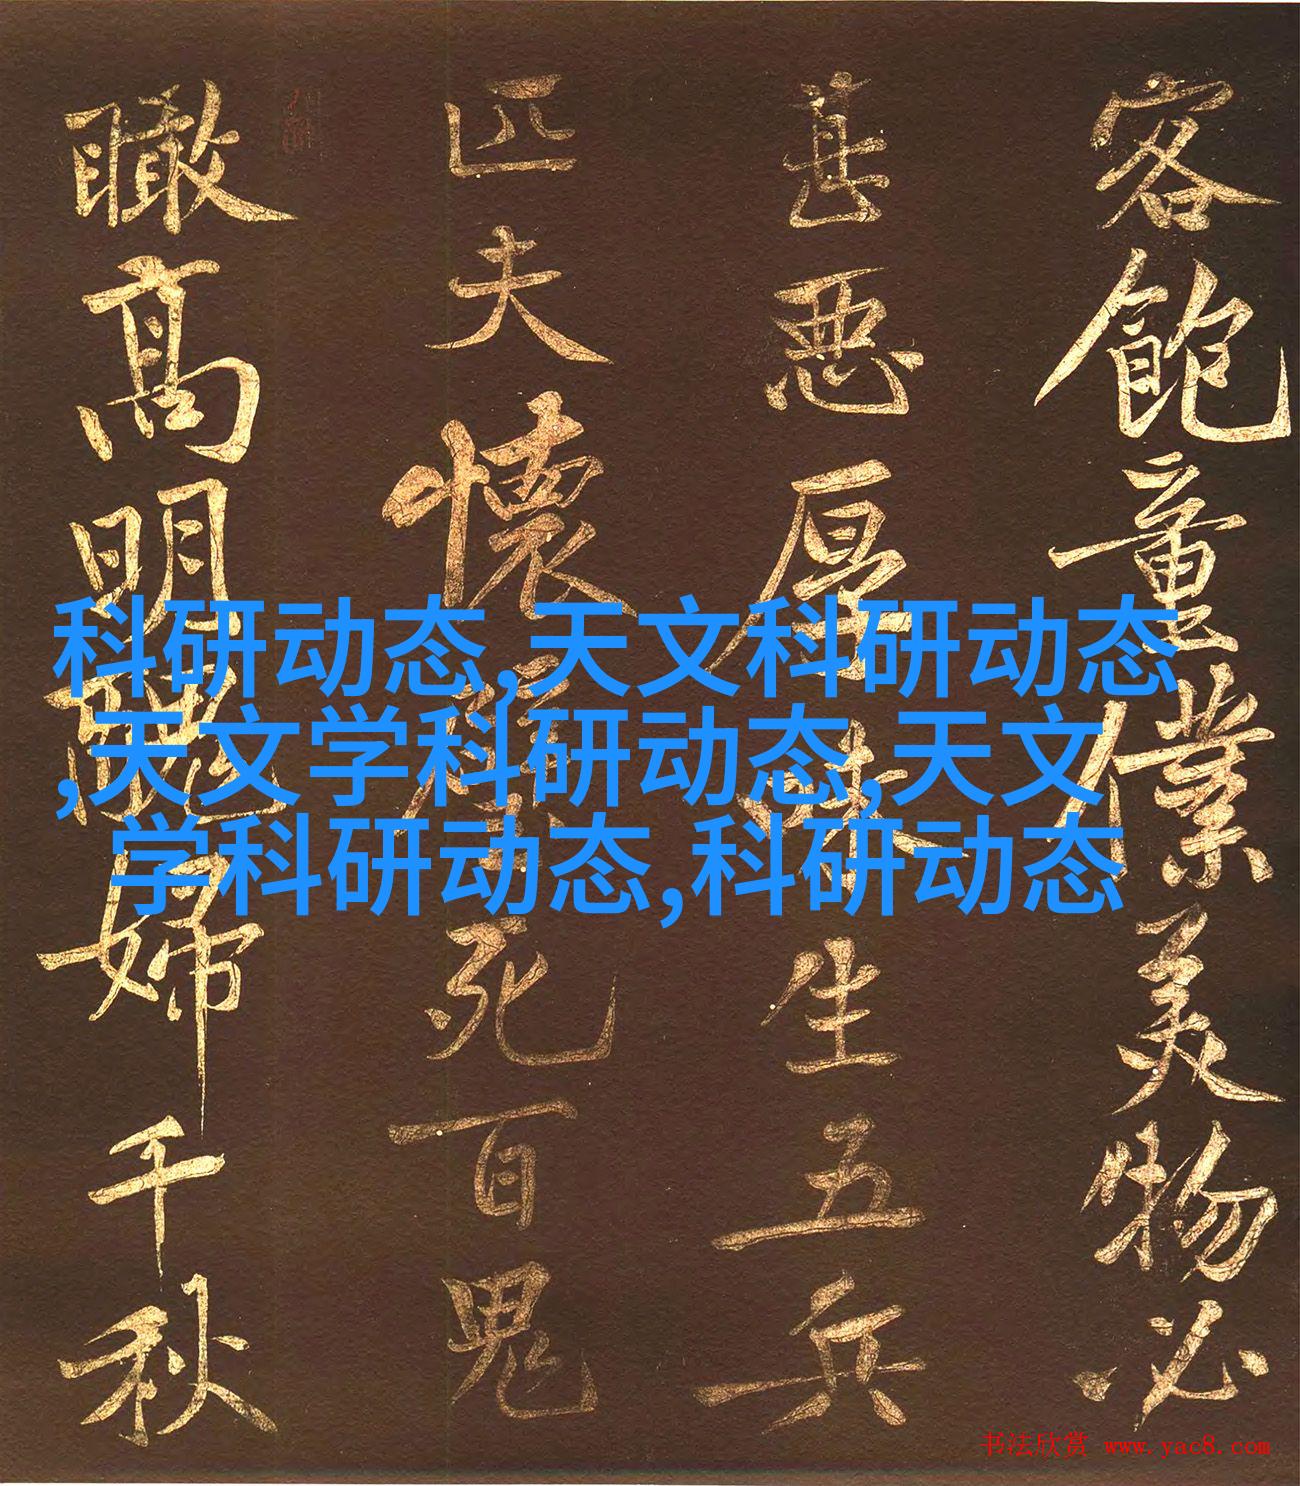 客飽童僕美物必
甚惡厚味生五兵
匹夫懷璧死百鬼
瞰高明醜婦千秋
科研动态,天文科研动态
,天文学科研动态,天文
学科研动态,科研动态
书法欣赏 www.yac8.com